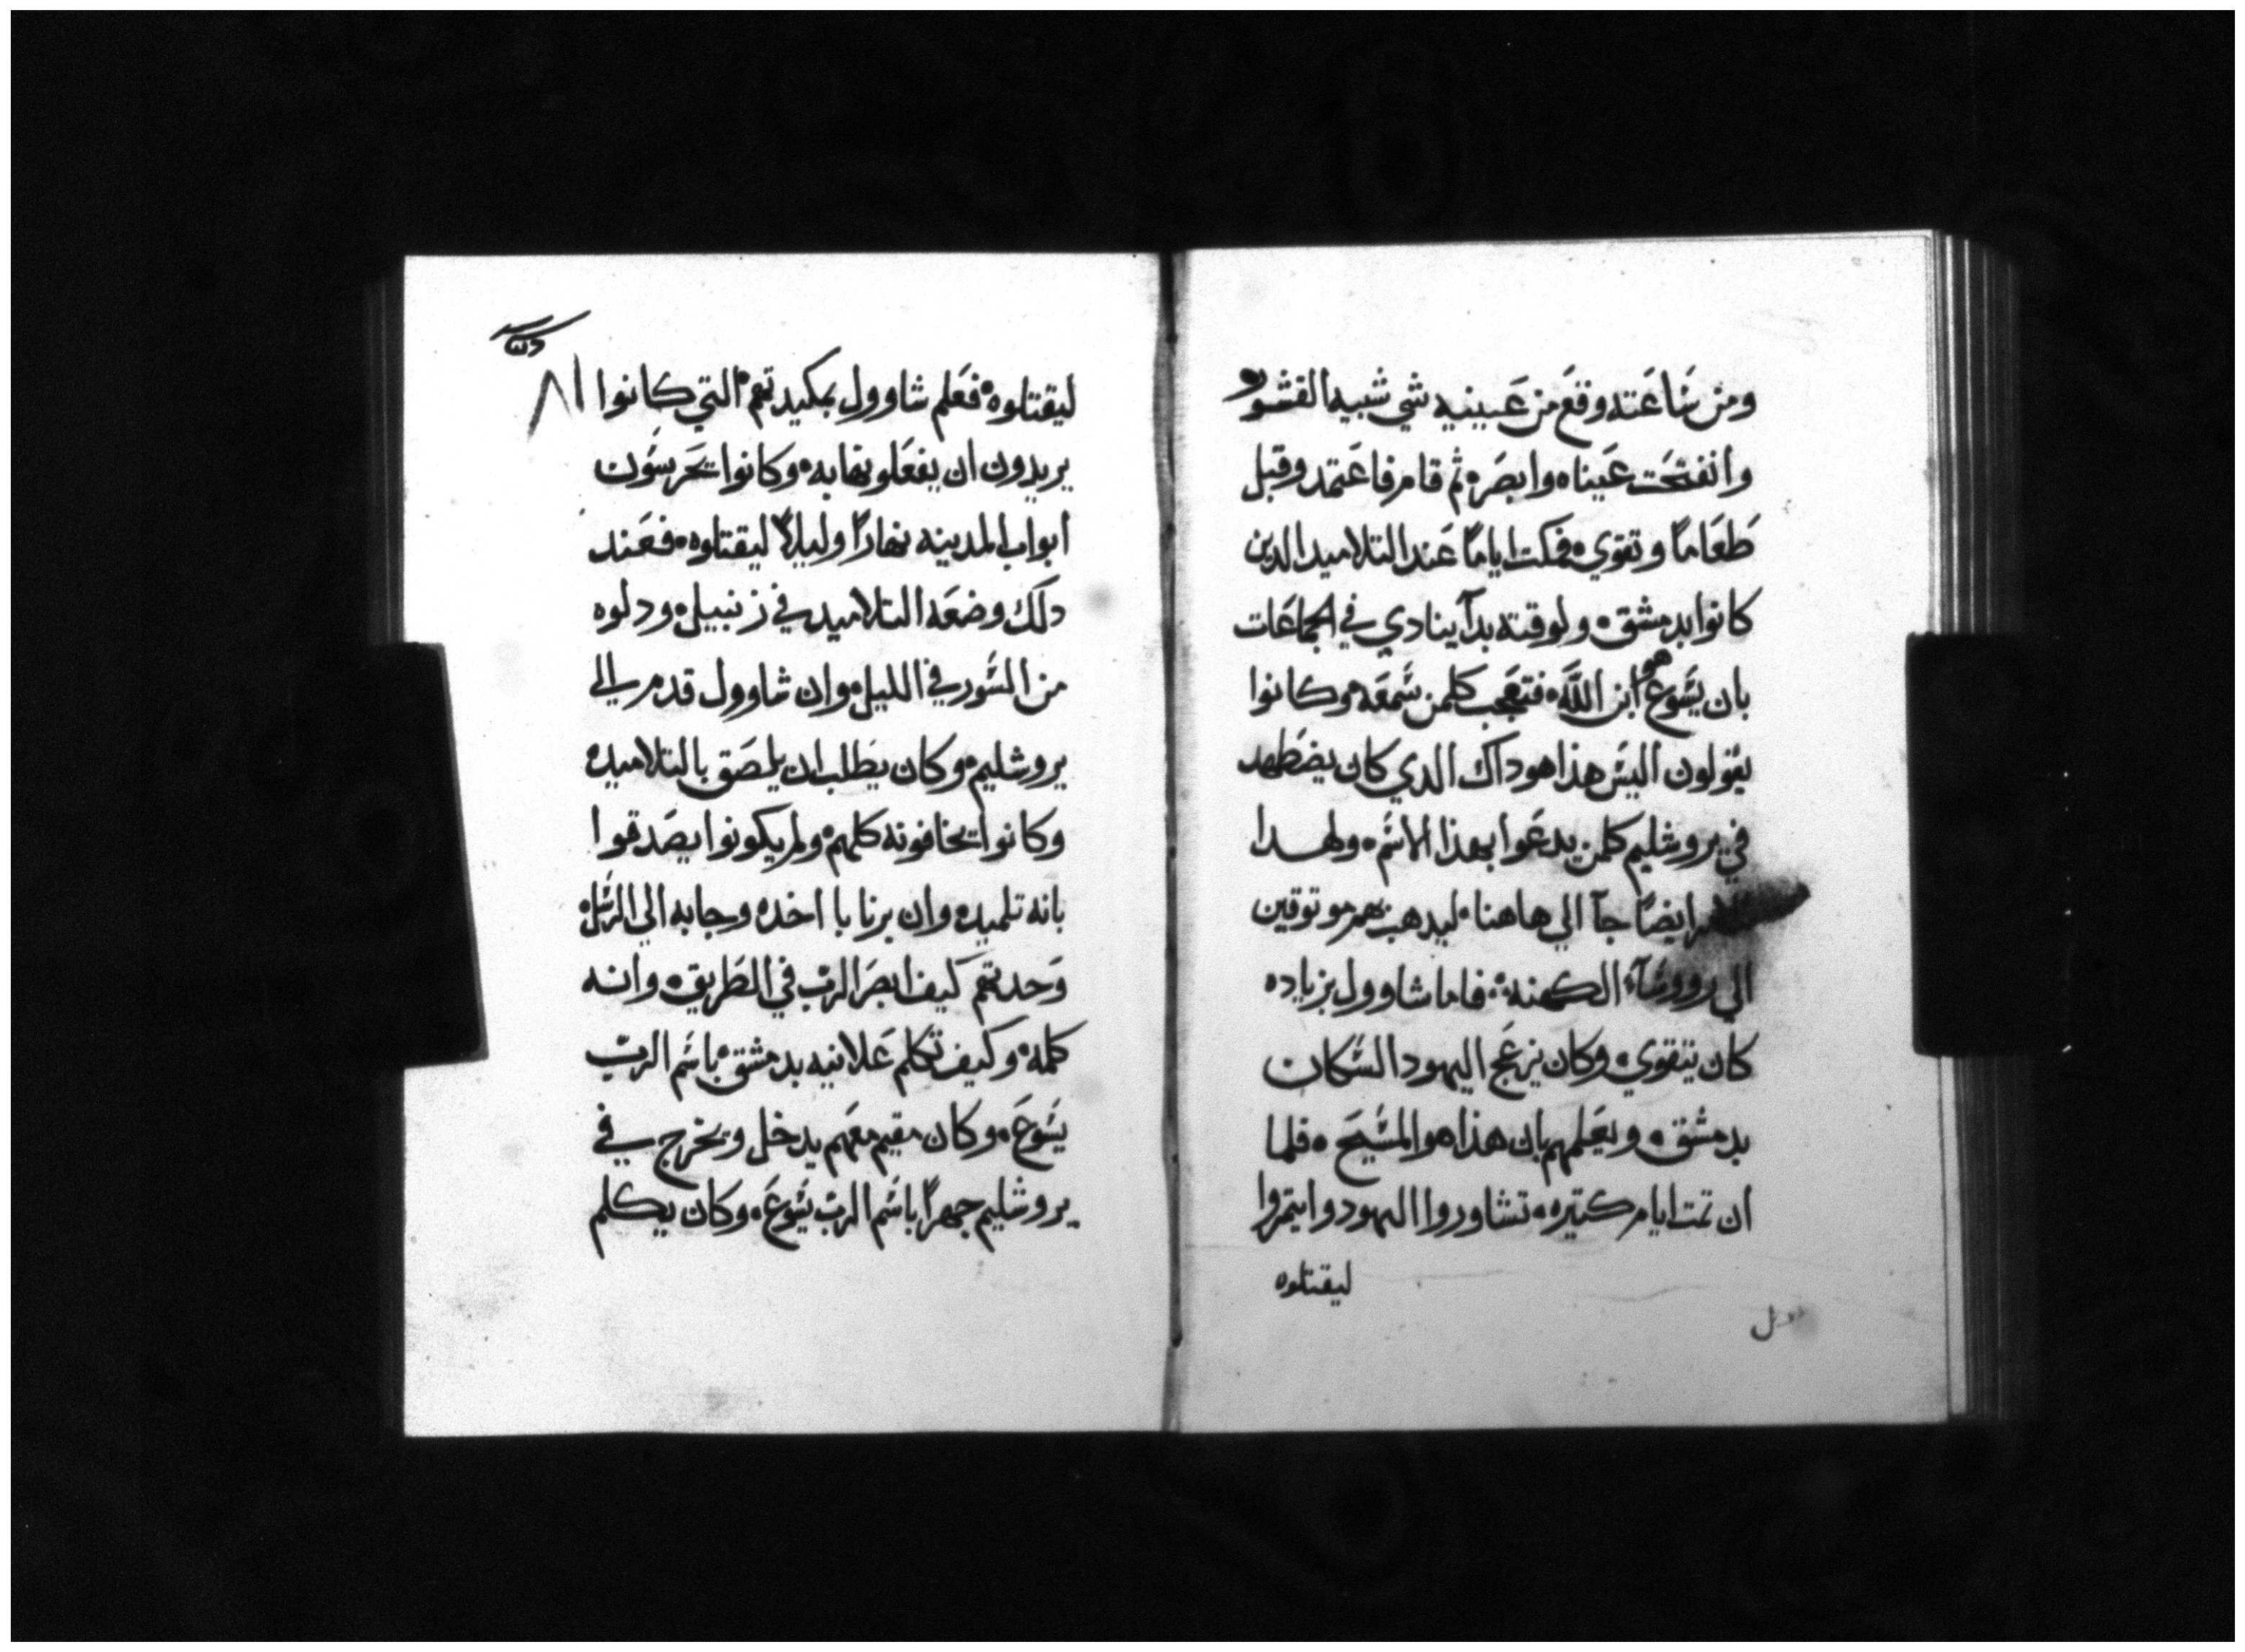 ومن ساعته وقع من عينيه شي شبيه القشور
وانفتحت عيناه وابصر ثم قام فاعتمد وقبل
طعاما وتقوي فمكت اياما عند التلاميد الدين
كانوا بدمشق ولوقته بدآ ينادي في الجماعات
بان يسوع هو ابن الله فتعجب كلمن سمعه وكانوا
يقولون اليس هذا هو داك الدي كان يضطهد
في يروشليم كلمن يدعوا بهذا الاسم ولهدا
ايضا جآ الي هاهنا ليدهب بهم موتوقين
الي رووسآء الكهنة فاما شاوول بزياده
كان يتقوي وكان يزعج اليهود السكان
بدمشق ويعلمهم بان هذا هو المسيح فلما
ان تمت ايام كتيره تشاوروا اليهود وايتمروا
ليقتلوه
ليقتلوه فعلم شاوول بمكيدتهم التي كانوا
يريدون ان يفعلونها به وكانوا يحرسون
ابواب المدينه نهارا وليلا ليقتلوه فعند
دلك وضعه التلاميد في زنبيل ودلوه
من السور في الليل وان شاوول قدم الي
يروشليم وكان يطلب ان يلصق بالتلاميد
وكانوا يخافونه كلهم ولم يكونوا يصدقوا
بانه تلميد وان برنابا اخده وجابه الي الرسل
وحدتهم كيف ابصر الرب في الطريق وانه
كلمه وكيف تكلم علانيه بدمشق باسم الرب
يسوع وكان مقيم معهم يدخل ويخرج في
يروشليم جهرا باسم الرب يسوع وكان يكلم